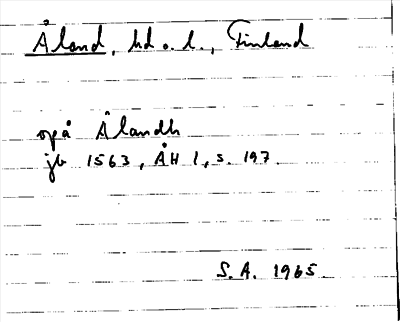 Åland, hd o. l., Finland
opå Ålandh
jb 1563, ÅH 1, s. 197.
S. A. 1965.